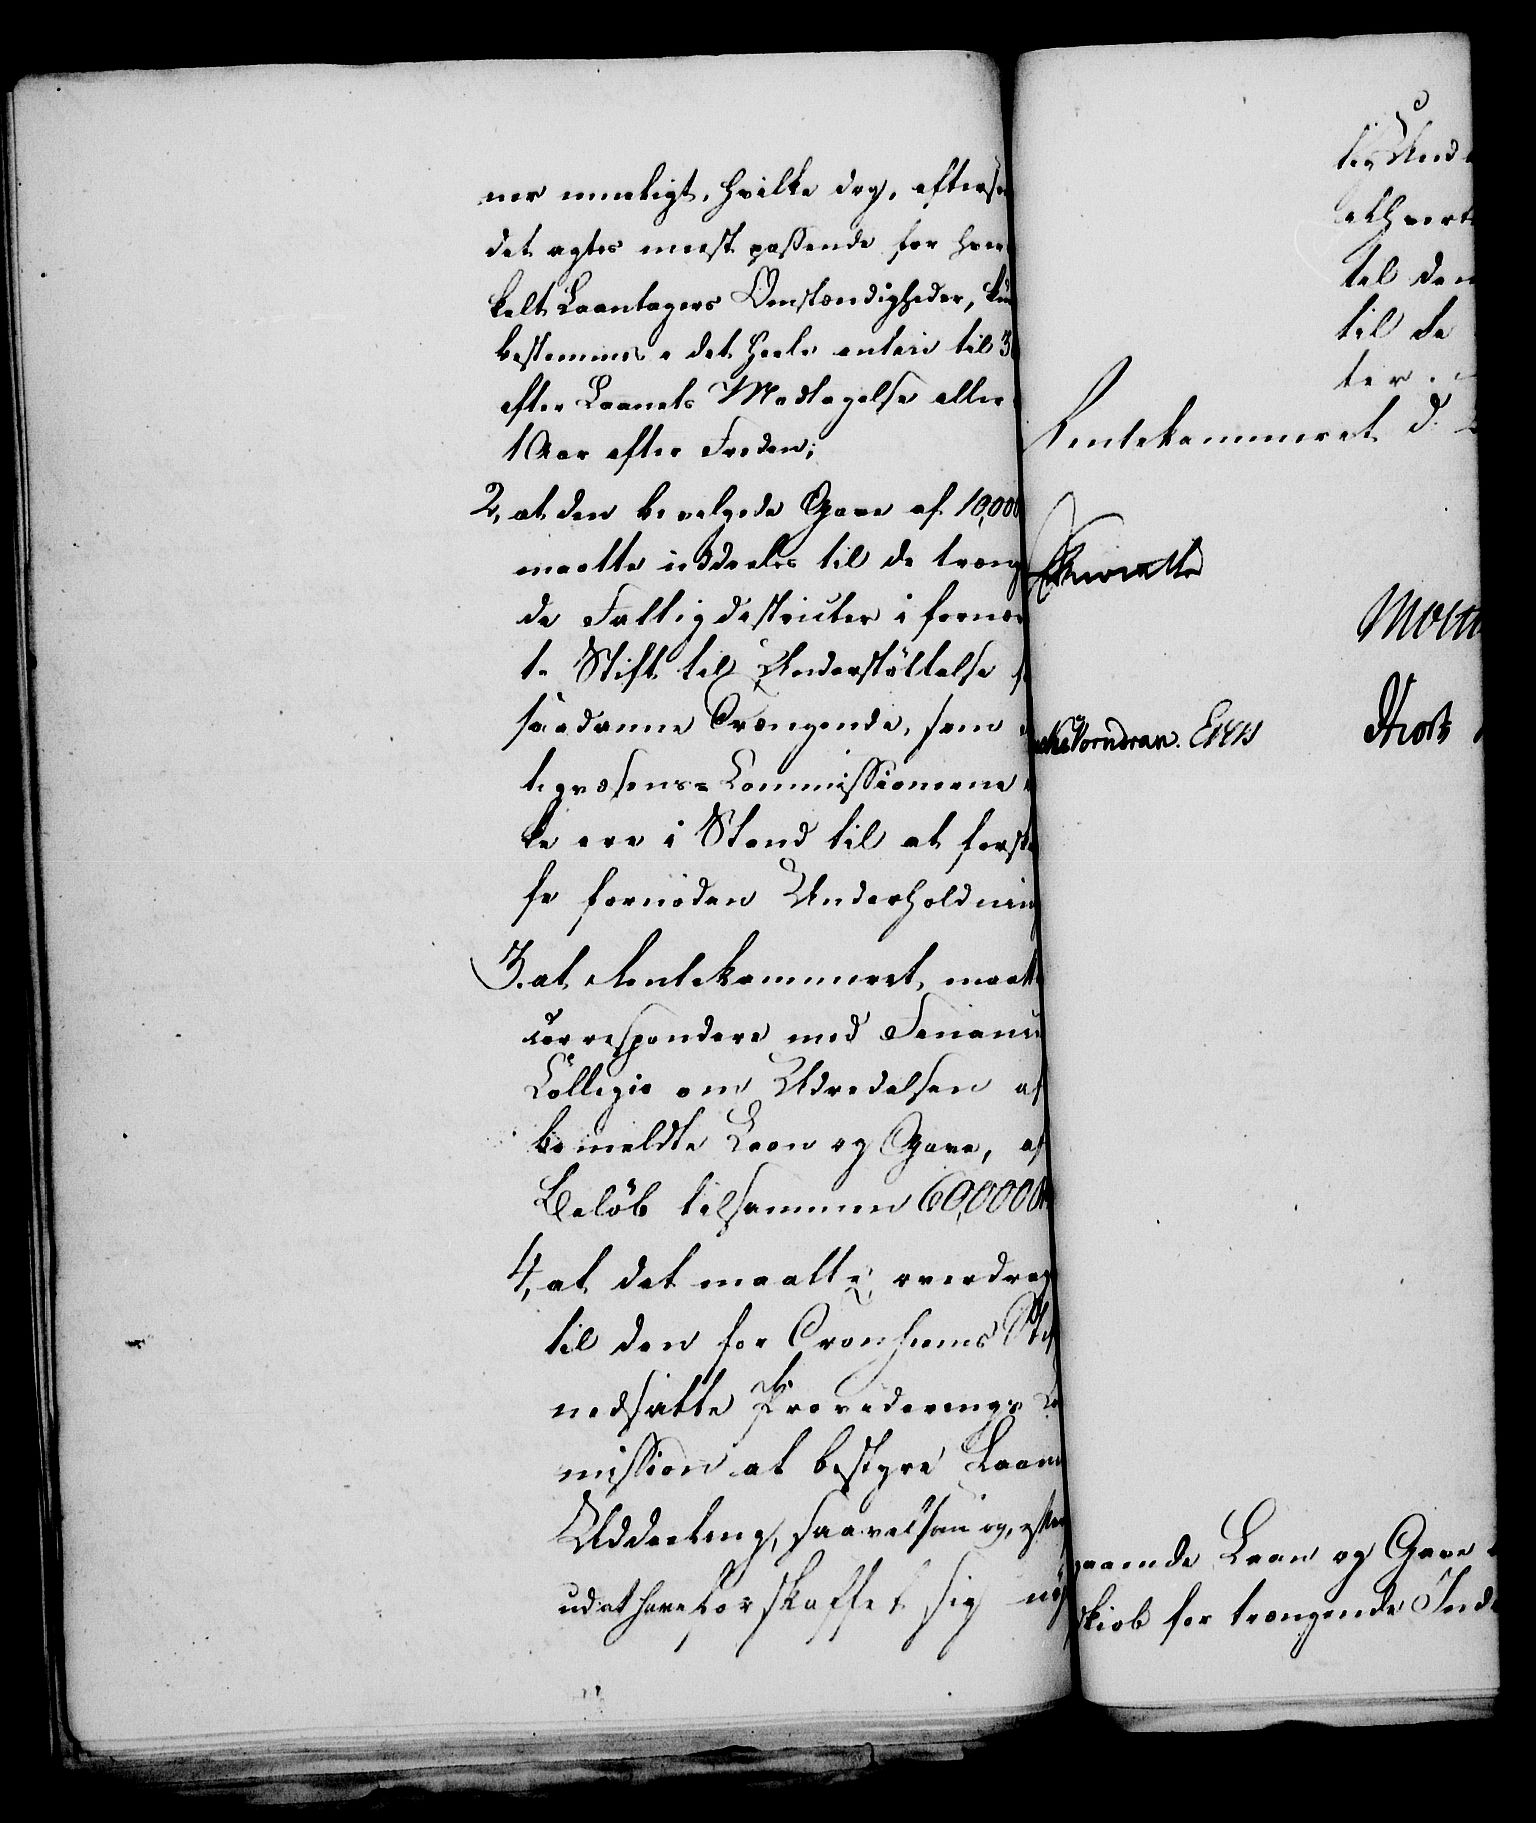 ner mueligt, hvilke dog, eftersom
det agtes meest passende for hver
kelt Laantagers Omstændigheder, kun
bestemmes i det heele enten til 3
efter Laanets Modtagelse eller
1 Aar efter Freden;
2, at den bevilgede Gave af 10,000
maatte uddeeles til de træng
de Fattigdistricter i fornæv
te Stift til Understöttelse f
saadanne Trængende, som
tigvæsens-Commissionerne
ke ere i Stand til at forska
fe fornöden Underholdning
3. at Rentekammeret maatte
correspondere med Finants
Collegio om Udredelsen af
bemeldte Laan og Gave, af
Belöb tilsammen 60,000
4, at det maatte overdrag
til den for Tronhiems Stif
nedsatte Provideerings Co
mission at bestyre Laane
Uddeeling, saavelsom og, efter
ud at have forskaffet sig nöi
ter Und
ethvert
til den
til de
ter.
Rentekammeret d.
Vorndran.
gaaende Laan og Gave
skiöb for trængende Ind